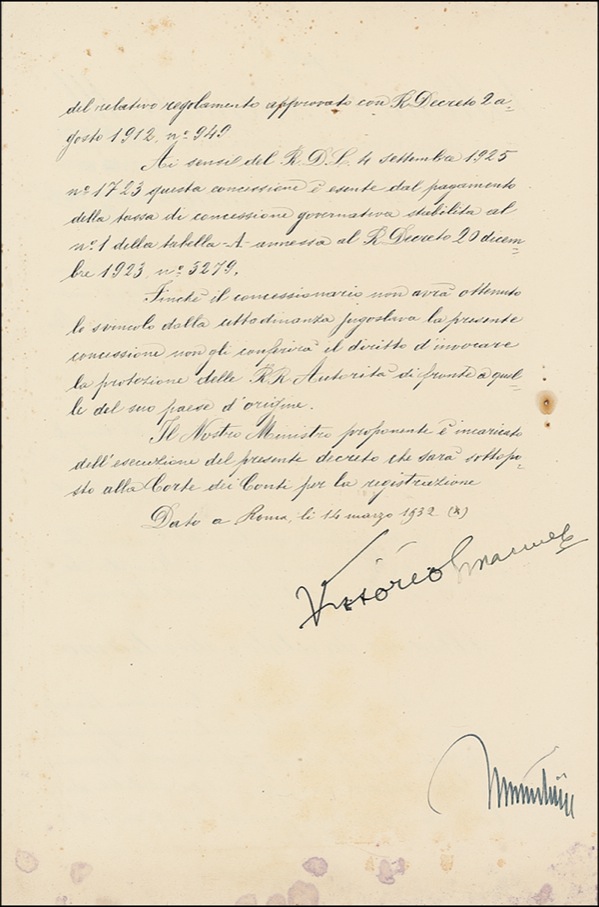 del relativo regolamento approvato con R. Decreto 2 a=
gosto 1912, nº 949
Ai sensi del R. D. L. 4 settembre 1925
nº 1723 questa concessione è esente dal pagamento
della tassa di concessione governativa stabilita al
nº 1 della tabella A annessa al R. Decreto 20 dicem=
bre 1923, nº 3279.
Finchè il concessionario non avrà ottenuto
lo svincolo dalla cittadinanza Jugoslava la presente
concessione non gli conferirà il diritto d'invocare
la protezione delle RR Autorità di fronte a quel=
le del suo paese d'origine.
Il Nostro Ministro proponente è incaricato
dell'esecuzione del presente decreto che sarà sottopo=
sto alla Corte dei Conti per la registrazione
Dato a Roma, li 14 marzo 1932 (X)
Vittorio Emanuele